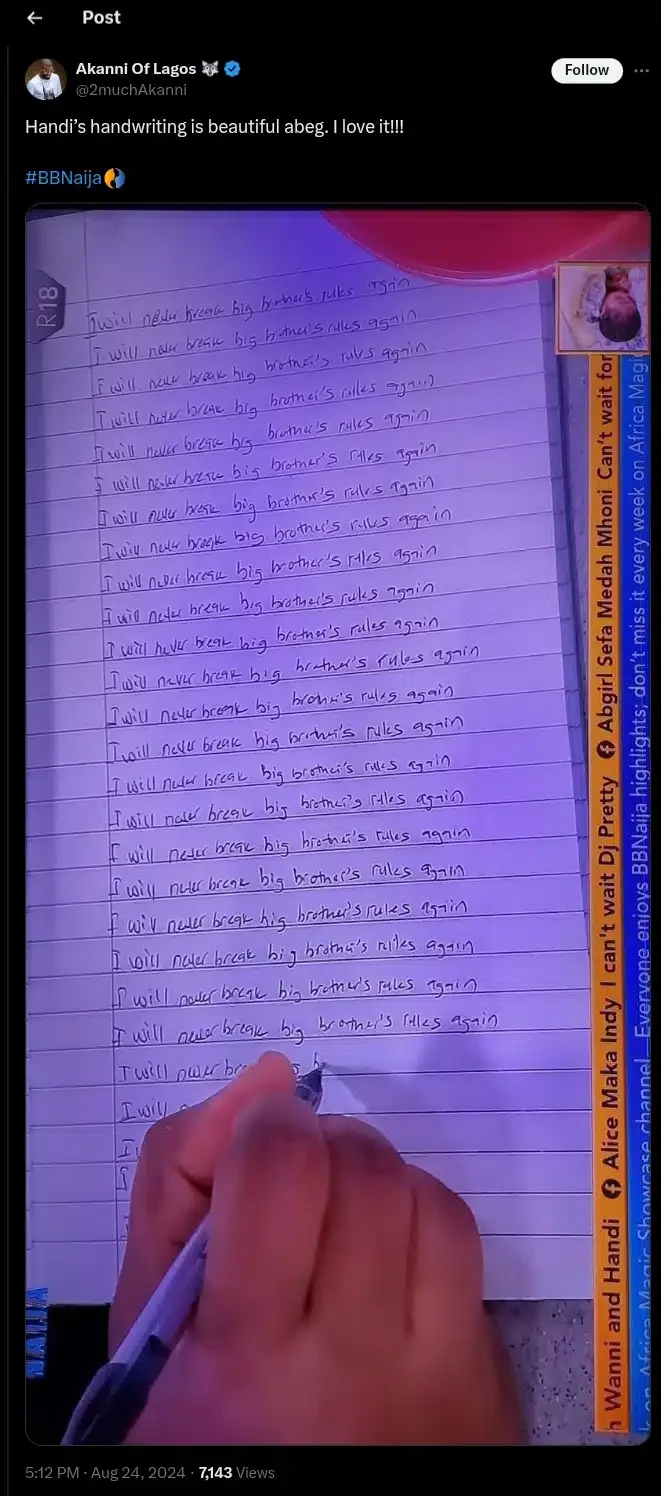 Post
Akanni Of Lagos
@2muchAkanni
Follow
Handi’s handwriting is beautiful abeg. I love it!!!
#BBNaija
R18
I will never break big brother's rules again
I will never break big brother's rules again
I will never break big brother's rules again
I will never break big brother's rules again
I will never break big brother's rules again
I will never break big brother's rules again
I will never break big brother's rules again
I will never break big brother's rules again
I will never break big brother's rules again
I will never break big brother's rules again
I will never break big brother's rules again
I will never break big brother's rules again
I will never break big brother's rules again
I will never break big brother's rules again
I will never break big brother's rules again
I will never break big brother's rules again
I will never break big brother's rules again
I will never break big brother's rules again
I will never break big brother's rules again
I will never break big brother's rules again
I will never break big brother's rules again
I will never break big brother's rules again
I will never
I will
I
I
NAIJA
Wanni and Handi Alice Maka Indy I can't wait Dj Pretty Abgirl Sefa Medah Mhoni Can't wait for
on Africa Magic Showcase channel Everyone enjoys BBNaija highlights; don't miss it every week on Africa Magic
5:12 PM · Aug 24, 2024 · 7,143 Views